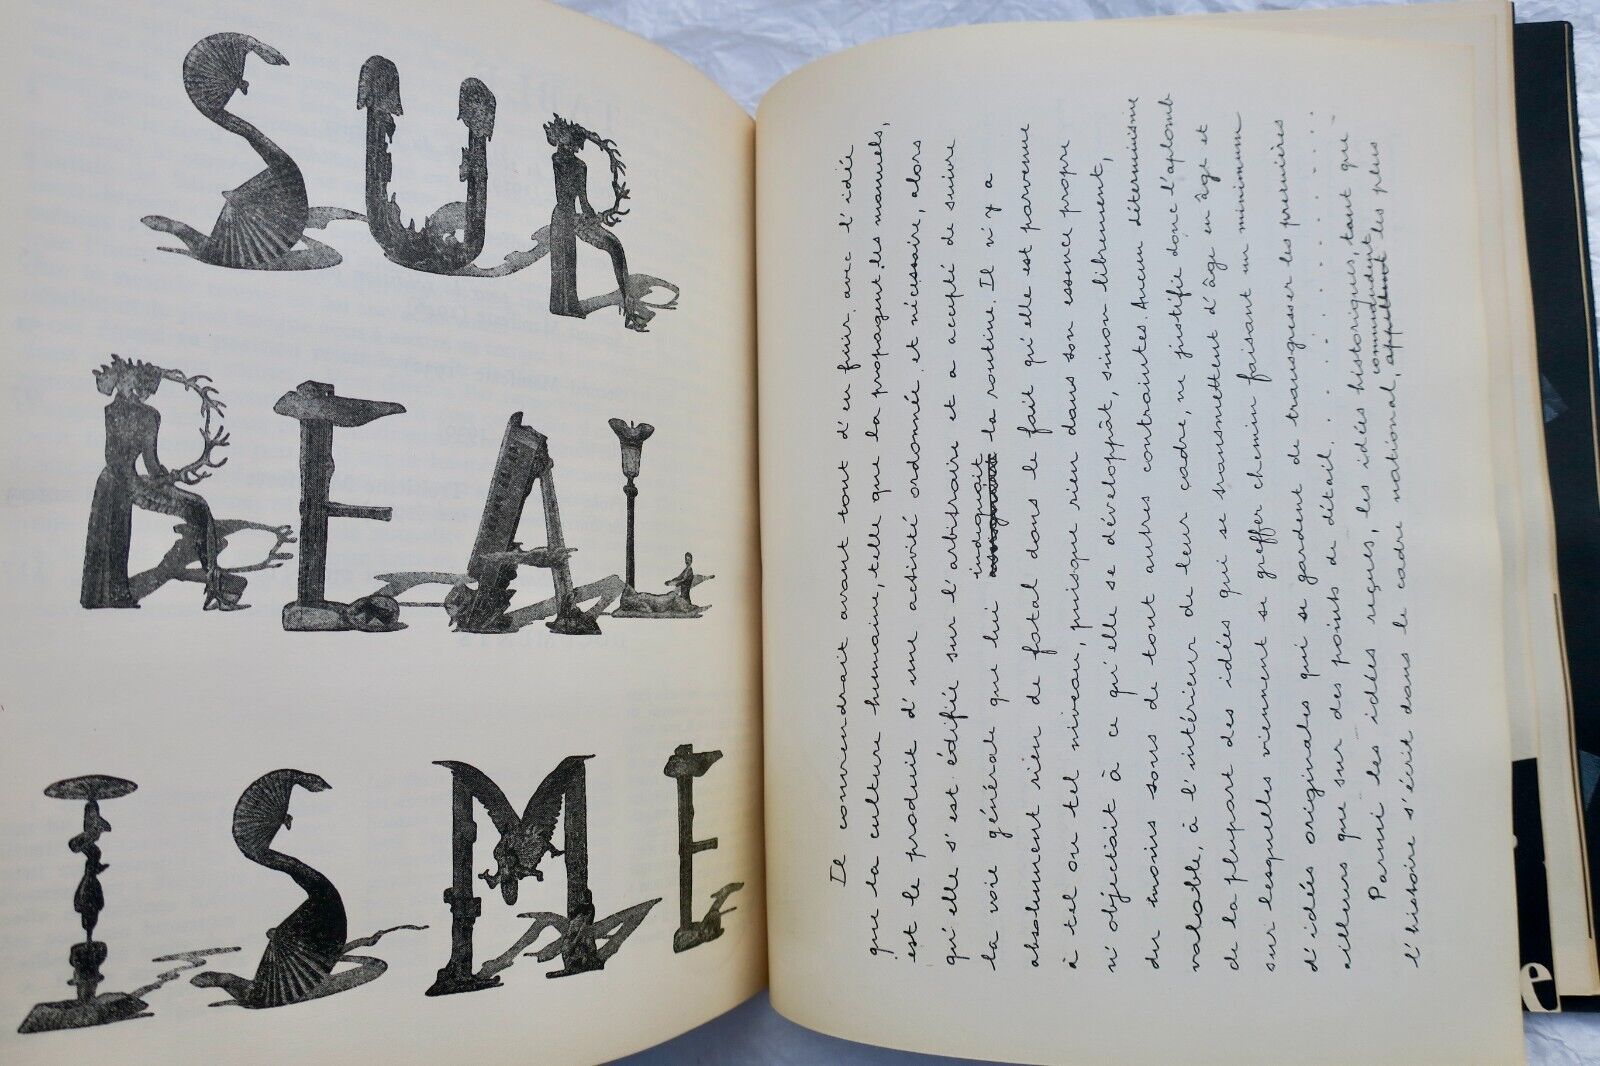 SUR
REAL
ISME
Il conviendrait avant tout d'en finir avec l'idée
que la culture humaine, telle que la propagent les manuels,
est le produit d'une activité ordonnée et nécessaire, alors
qu'elle s'est édifiée sur l'arbitraire et a accepté de suivre
la voie générale que lui indiquait la routine. Il n'y a
absolument rien de fatal dans le fait qu'elle est parvenue
à tel ou tel niveau, puisque rien dans son essence propre
n'objectait à ce qu'elle se développât, sinon librement,
du moins sous de tout autres contraintes. Aucun déterminisme
valable, à l'intérieur de leur cadre, ne justifie donc l'aplomb
de la plupart des idées qui se transmettent d'âge en âge et
sur lesquelles viennent se greffer chemin faisant un minimum
d'idées originales qui se gardent de transgresser les premières
ailleurs que sur des points de détail. . . . . . . . . . . . .
Parmi les idées reçues, les idées historiques, tant que
l'histoire s'écrit dans le cadre national, commandent les plus
e